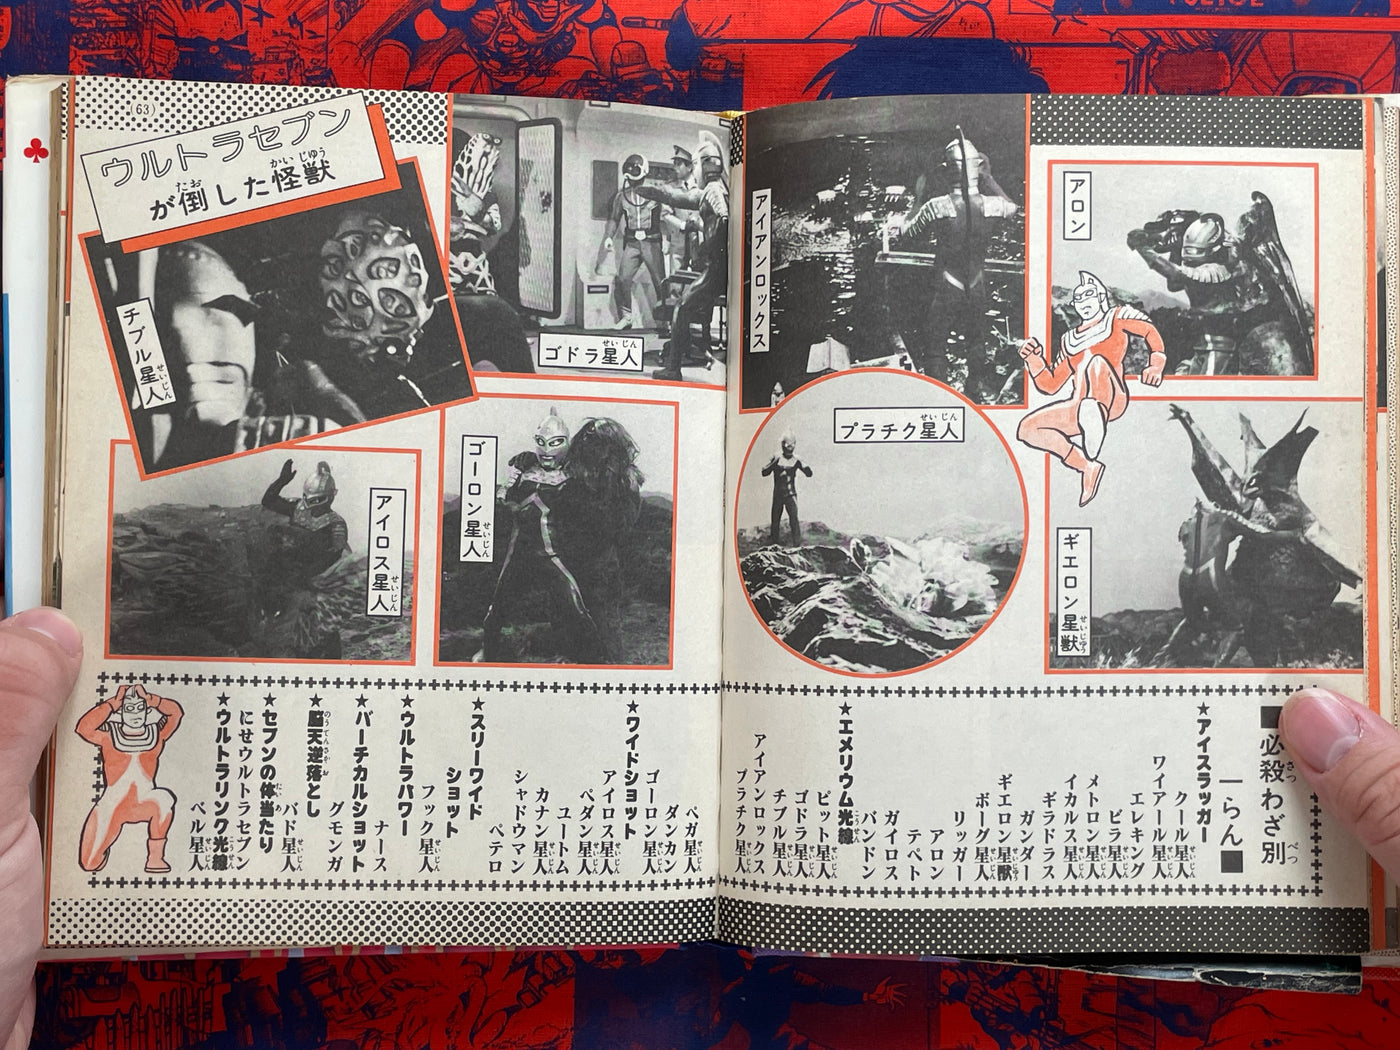 (63)
ウルトラセブン
が倒した怪獣
チブル星人
ゴドラ星人
アイアンロックス
アロン
アイロス星人
ゴーロン星人
プラチク星人
ギエロン星獣
■必殺わざ別
一らん■
★アイスラッガー
クール星人
ワイアール星人
エレキング
ビラ星人
メトロン星人
イカルス星人
ギラドラス
ガンダー
ギエロン星獣
ボーグ星人
リッガー
アロン
テペト
ガイロス
パンドン
★エメリウム光線
ピット星人
ゴドラ星人
チブル星人
アイアンロックス
プラチク星人
ペガ星人
ダンカン
ゴーロン星人
★ワイドショット
アイロス星人
ペダン星人
ユートム
カナン星人
シャドウマン
ペテロ
★スリーワイド
ショット
フック星人
★ウルトラパワー
ナース
★バーチカルショット
グモンガ
★脳天逆落とし
バド星人
★セブンの体当たり
にせウルトラセブン
★ウルトラリンク光線
ベル星人